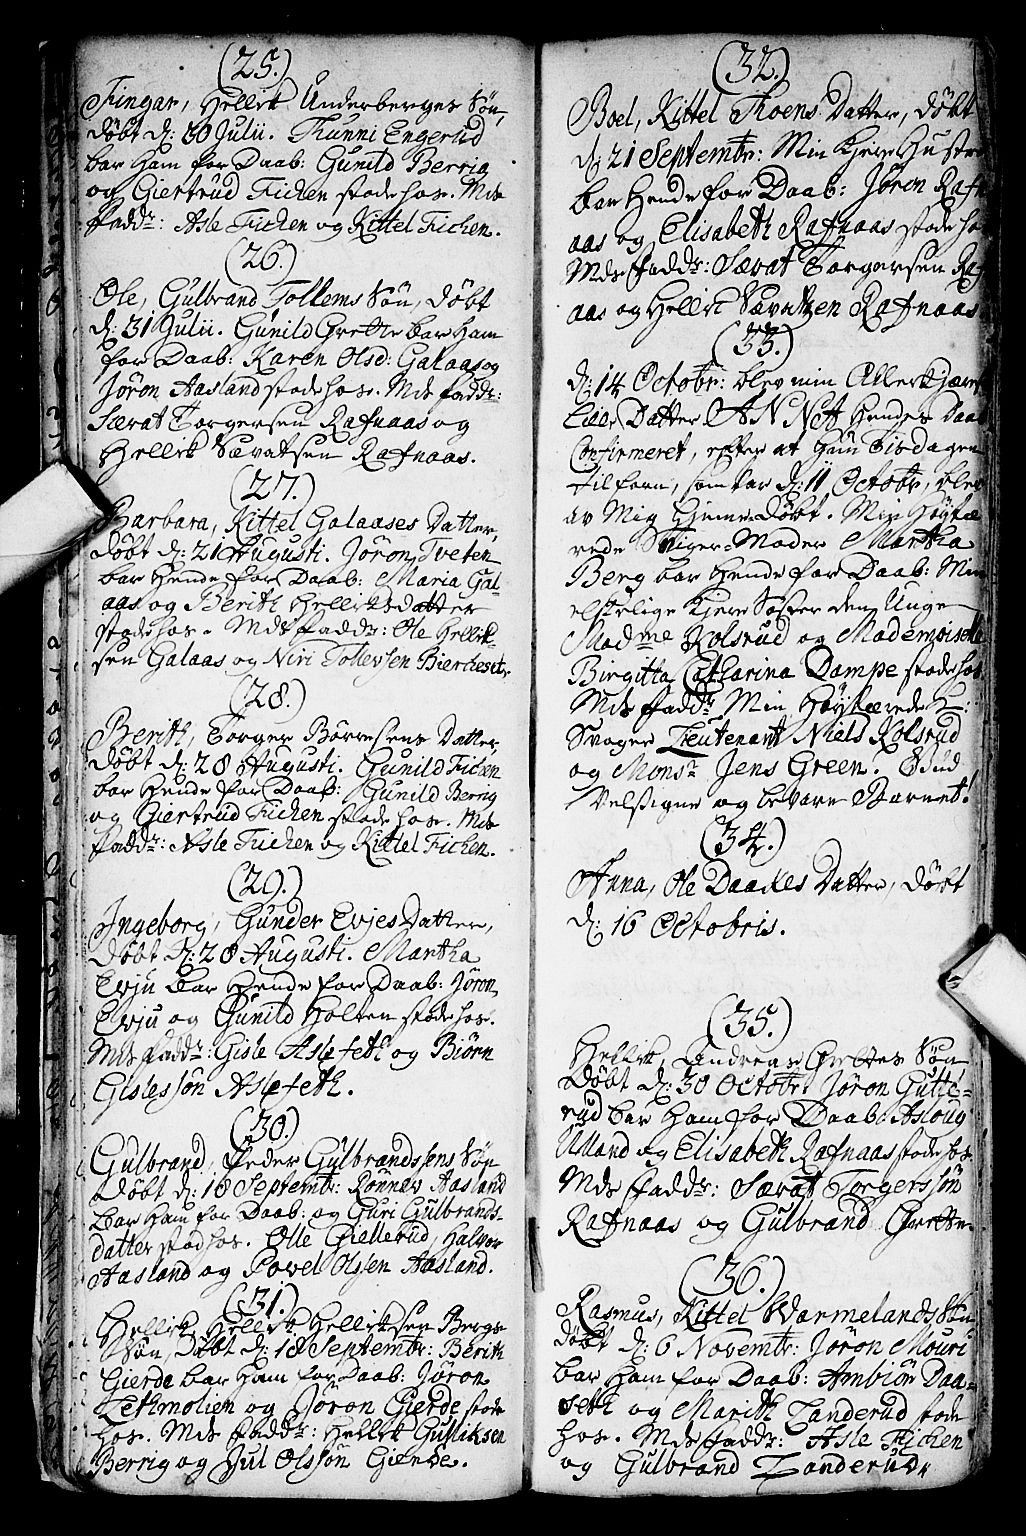 (25.)
Fingar, Hellik Underberges Søn,
døbt d: 30 Julii. Thunni Engerud
bar ham for Daab: Gunild Berrig
og Giertrud Fichen stode hos. Mds
fadd: Asle Fichen og Kittel Fichen.
(26.)
Ole, Gulbrand Follems Søn, døbt
d: 31 Julii. Gunild Grette bar ham
for Daab: Karen Olsd: Galaas og
Jøron Aasland stode hos. Mds fadd:
Særat Torgersen Rafnaas og
Hellik Sævatsen Rafnaas.
(27.)
Barbara, Kittel Galaases Datter,
døbt d: 21 Augusti. Jøron Tveten
bar hende for Daab: Maria Gal-
aas og Berith Helliksdatter
stode hos. Mds fadd: Ole Hellik-
sen Galaas og Niri Tollevsen Biercheset.
(28.)
Berith, Torger Børresens Datter,
døbt d: 28 Augusti. Gunild Fichen
bar hende for Daab: Gunild Berrig
og Giertrud Fichen stode hos. Mds
fadd: Asle Fichen og Kittel Fichen.
(29.)
Ingeborg, Gunder Evjes Datter,
døbt d: 28 Augusti. Martha
Evju bar hende for Daab: Jøron
Evju og Gunild Holten stode hos.
Mds fadd: Gisle Aslefeth og Biørn
Gislessøn Aslefeth.
(30.)
Gulbrand, Peder Gulbrandsens Søn
døbt d: 18 Septembr: Rønnev Aasland
bar ham for Daab: og Guri Gulbrands-
datter stod hos. Olle Giellerud, Halvor
Aasland og Povel Olssen Aasland.
(31.)
Hellik, Hellik Helliksen Bergs
Søn, døbt d: 18 Septembr: Berith
Gierde bar ham for Daab: Jøron
Lethmolien og Jøron Gierde stode
hos. Mds fadd: Hellik Gulliksen
Berrig og Jul Olssøn Gierde.
(32.)
Boel, Kittel Thoens Datter, døbt
d: 21 Septembr: Min kjere Hustro
bar hende for Daab: Jøron Rafn-
aas og Elisabeth Rafnaas stode hos
Mds fadd: Særat Torgersen Raf
aas og Hellik Sævatsen Rafnaas.
(33.)
d: 14 Octobr: blev min Allerkjæreste
Datter ANNA hendes Daab
Confirmeret, efter at hun Tisdagen
tilforn, som var d: 11 Octobr, blev
av Mig hjemme døbt. Min Høytæ
rede Sviger-Moder Martha
Berg bar hende for Daab: Min
elskelige kjere Søster den Unge
Madme Kolsrud og Mademoiselle
Birgitta Catharina Dampe stode hos
Mds fadd: Min Høytærede H:
Svoger Lieutenant Niels Kolsrud
og Monsr Jens Green. Gud
Velsigne og bevare Barnet!
(34.)
Anna, Ole Daakes Datter, døbt
d: 16 Octobris.
(35.)
Hellik, Andreas Grettes Søn
døbt d: 30 Octobr: Jøron Gutte-
rud bar ham for Daab: Asloug
Ulland og Elisabeth Rafnaas stode hos
Mds fadd: Særat Torgerssøn
Rafnaas og Gulbrand Grette.
(36.)
Rasmus, Kittel Wærmelands Søn
døbt d: 6 Novembr: Jøron Mouri
bar ham for Daab: Ambiør Daa-
seth og Marith Landerud stode
hos. Mds fadd: Asle Fichen
og Gulbrand Landerud.